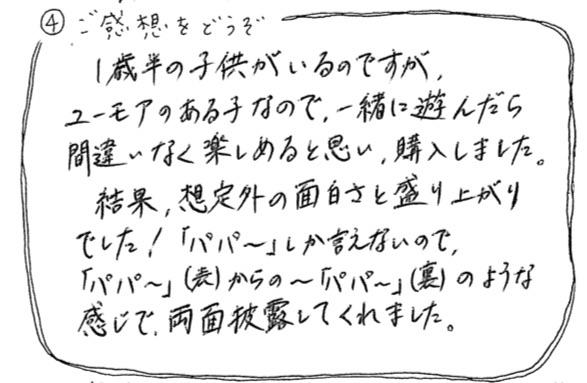 ④ ご感想をどうぞ
1歳半の子供がいるのですが、
ユーモアのある子なので、一緒に遊んだら
間違いなく楽しめると思い、購入しました。
結果、想定外の面白さと盛り上がり
でした！「パパ〜」しか言えないので、
「パパ〜」(表)からの〜「パパ〜」(裏)のような
感じで、両面披露してくれました。